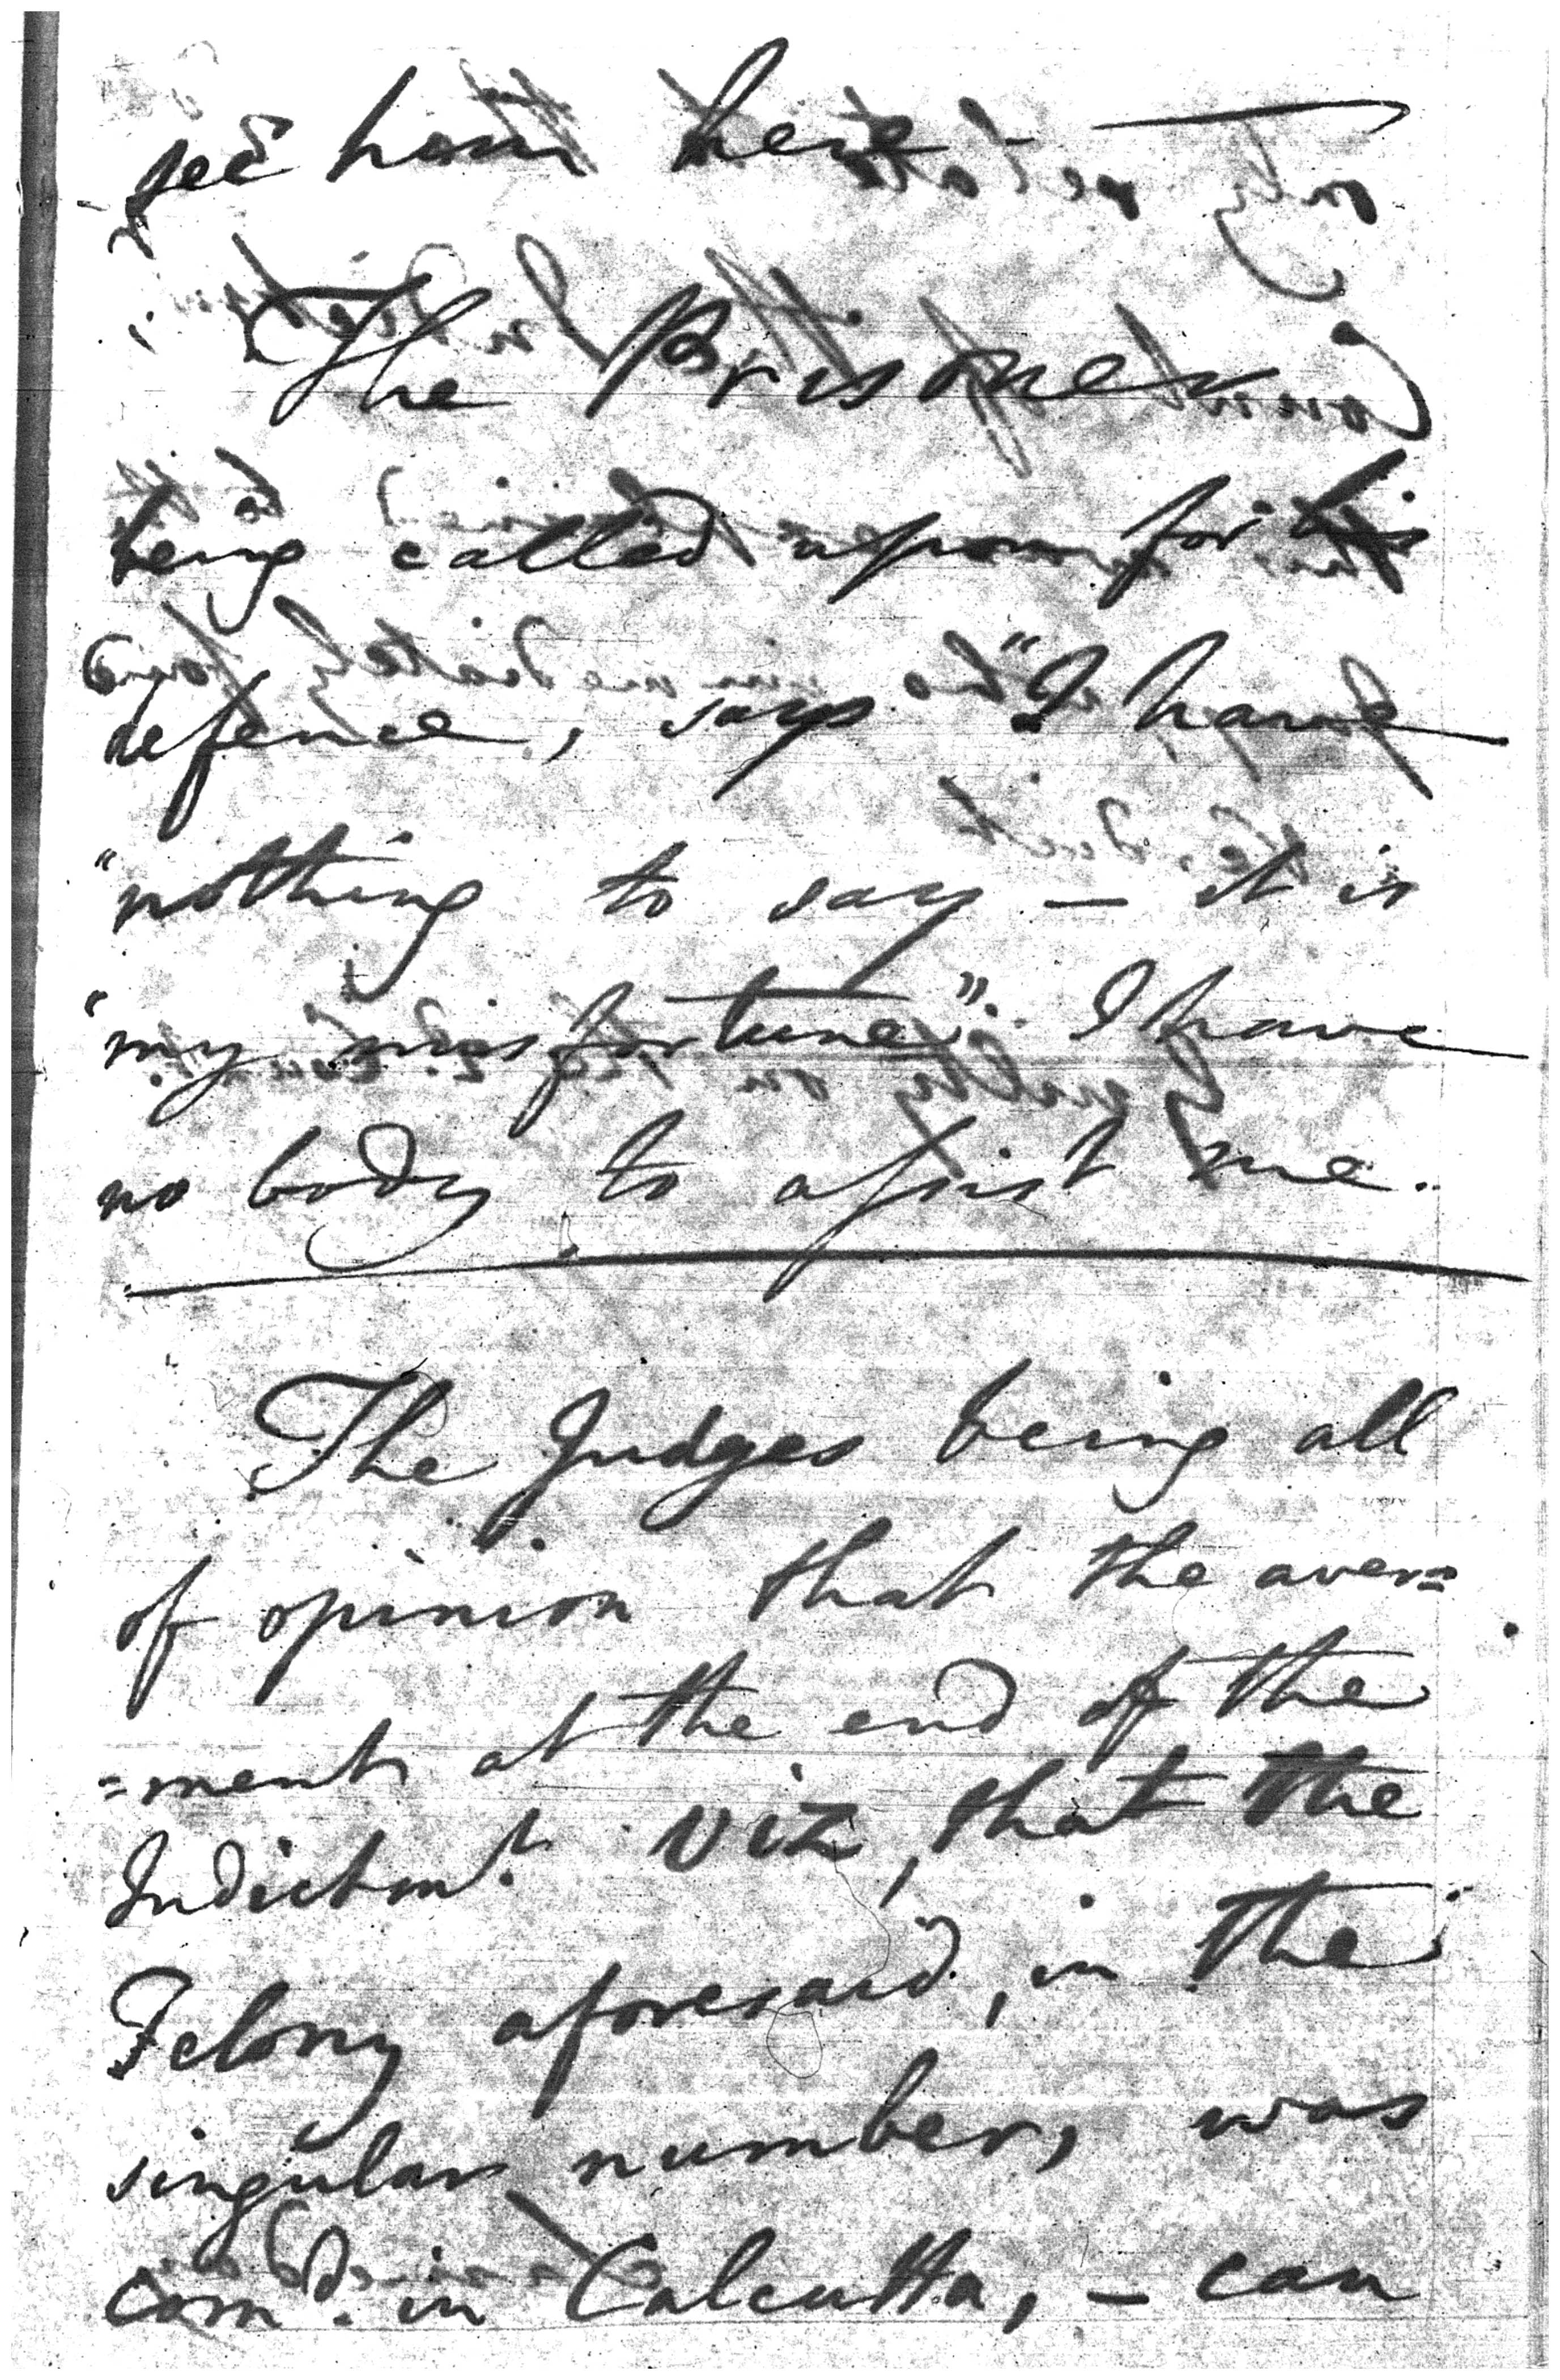 see him here —
The Prisoner
being called upon for his
defence, says "I have
"nothing to say — it is
"my misfortune". I have
no body to assist me.
The Judges being all
of opinion that the aver=
=ment at the end of the
Indictmt. viz, that the
Felony aforesaid, in the
singular number, was
comd. in Calcutta, — can